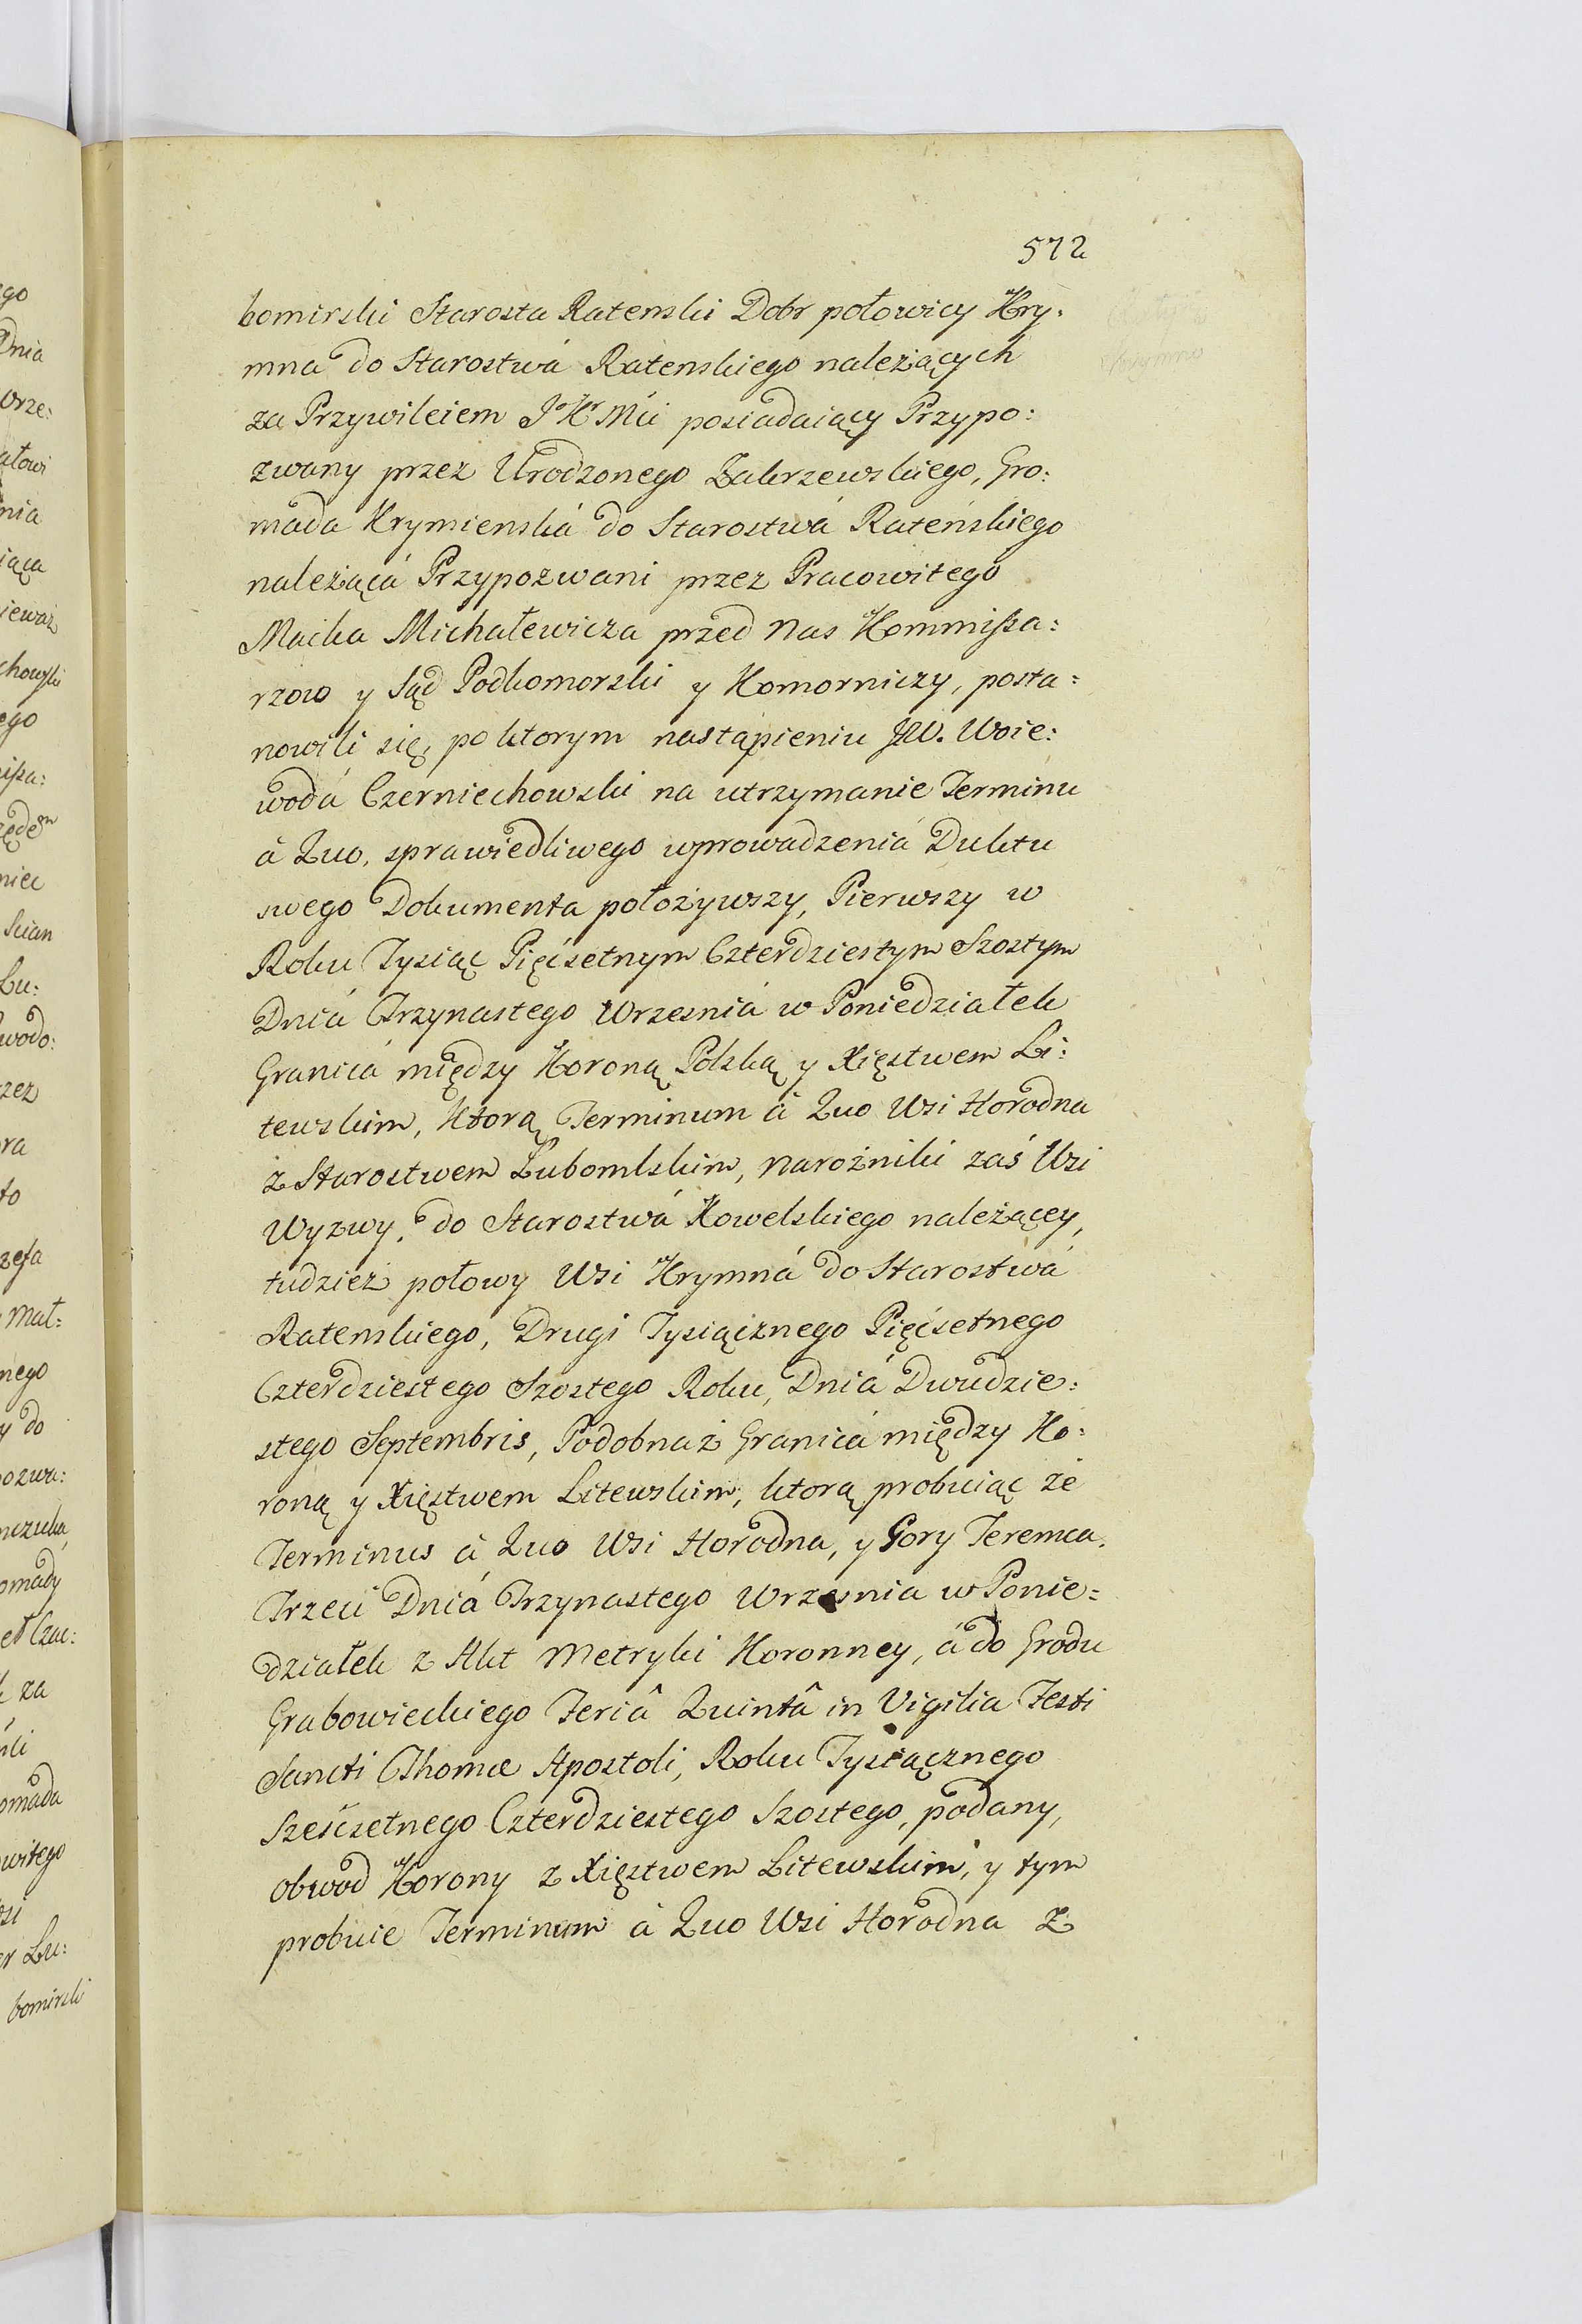 572
bomirski Starosta Ratenski Dobr połowicy Kry:
mna do Starostwá Ratenskiego należących
za Przywileiem JoKr Mći posiadaiący Przypo:
zwany przez Urodzonego Zakrzewskiego, Gro:
mada Krymienská do Starostwá Rateńskiego
należącá Przypozwani przez Pracowitego
Maćka Michałewicza przed Nas Kommissa:
rzow y Sąd Podkomorski y Komorniczy, posta:
nowili się, po ktorym nastąpieniu JW. Woie:
wodá Czerniechowski na utrzymanie Terminu
à Quo, sprawiedliwego wprowadzeniá Duktu
swego Dokumenta położywszy, Pierwszy w
Roku Tysiąc Pięćsetnym Czterdziestym Szostym
Dniá Trzynastego Wrzesniá w Poniedziałek
Granicá między Koroną Polską y Xięstwem Li:
tewskim, Ktorą Terminum à Quo Wsi Horodna
z Starostwem Lubomlskim, Narożniki zaś Wsi
Wyzwy, do Starostwá Kowelskiego należącey,
tudziez połowy Wsi Krymná do Starostwá
Ratenskiego, Drugi Tysiącznego Pięćsetnego
Czterdziestego Szostego Roku, Dniá Dwudzie:
stego Septembris, Podobnaż Granicá między Ko:
roną y Xięstwem Litewskim, ktorą probuiąc że
Terminus à Quo Wsi Horodna, y Gory Teremca,
Trzeci Dniá Trzynastego Wrzesnia w Ponie:
działek z Akt Metryki Koronney, á do Grodu
Grabowieckiego Feriâ Quintâ in Vigilia Festi
Sancti Thomæ Apostoli, Roku Tysiącznego
Szesćsetnego Czterdziestego Szostego, podany,
obwod Korony z Xięstwem Litewskim, y tym
probuie Terminum à Quo Wsi Horodna z
ego
Dnia
nia
iąca
iewaz
chowski
ego
Lu:
zez
ra
to
zefa
nego
y do
omady
za
omada
witego
bomirski